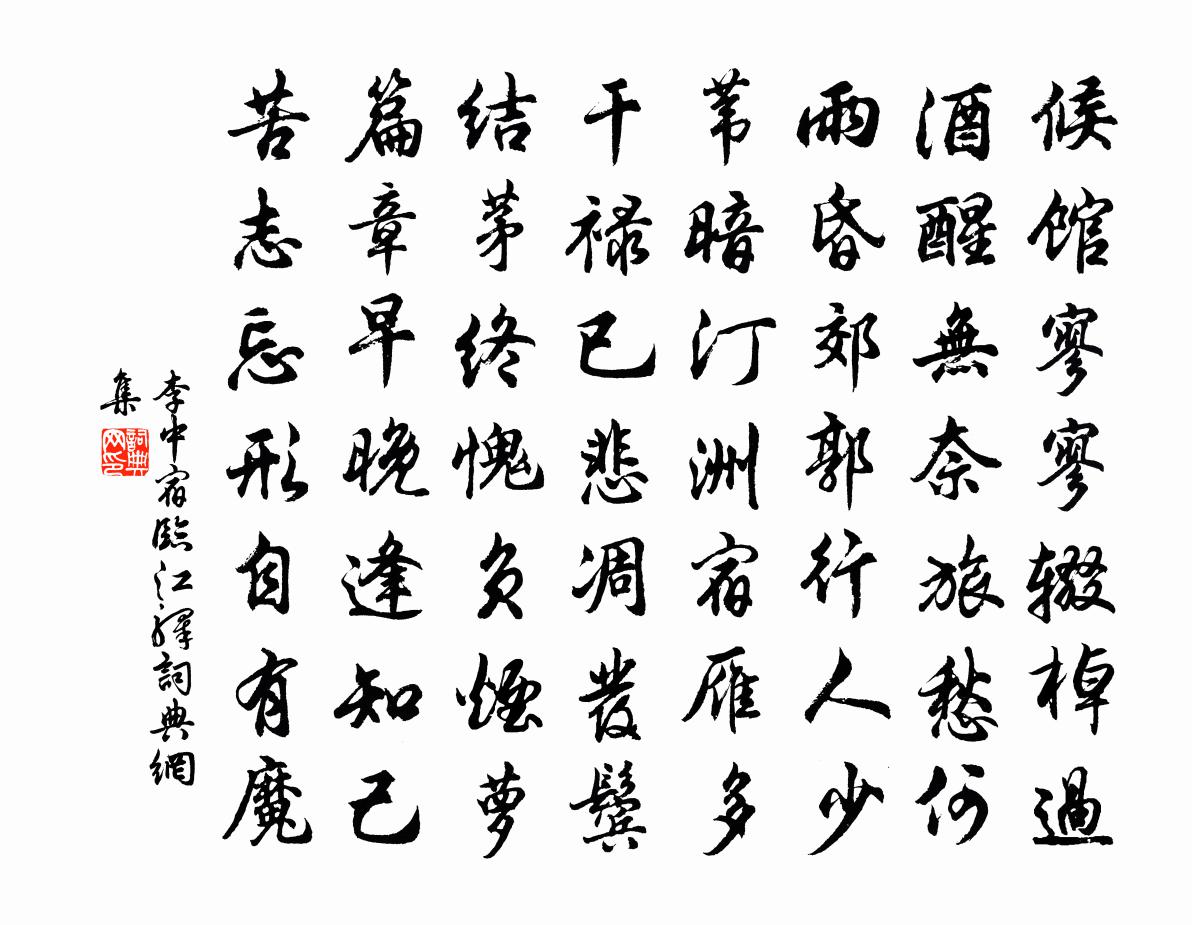 候館寥寥辍棹過
酒醒無奈旅愁何
雨昏郊郭行人少
苇暗汀洲宿雁多
干禄已悲凋發鬓
结茅终愧负煙萝
篇章早晚逢知己
苦志忘形自有魔
李中宿臨江驛詞典網
集
詞典網印